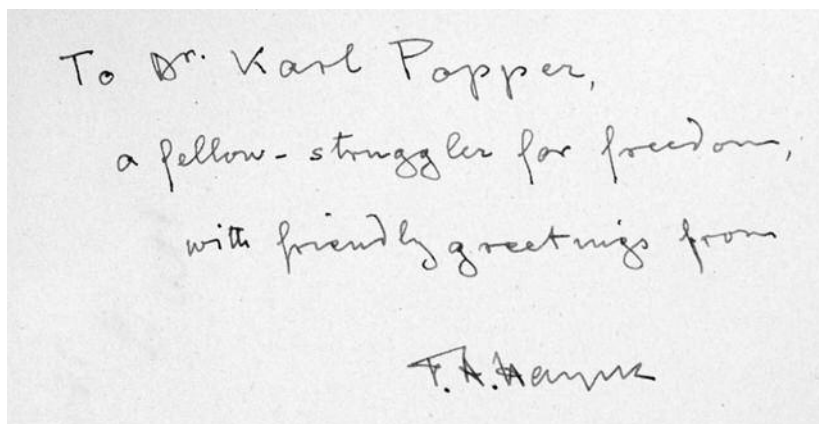 To Dr. Karl Popper,
a fellow-struggler for freedom,
with friendly greetings from
F.A. Hayek